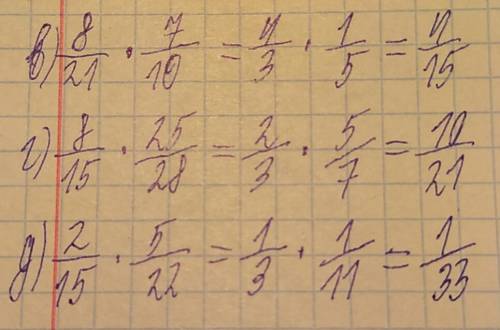 в) 8/21 · 7/10 = 4/3 · 1/5 = 4/15
г) 8/15 · 25/28 = 2/3 · 5/7 = 10/21
д) 2/15 · 5/22 = 1/3 · 1/11 = 1/33